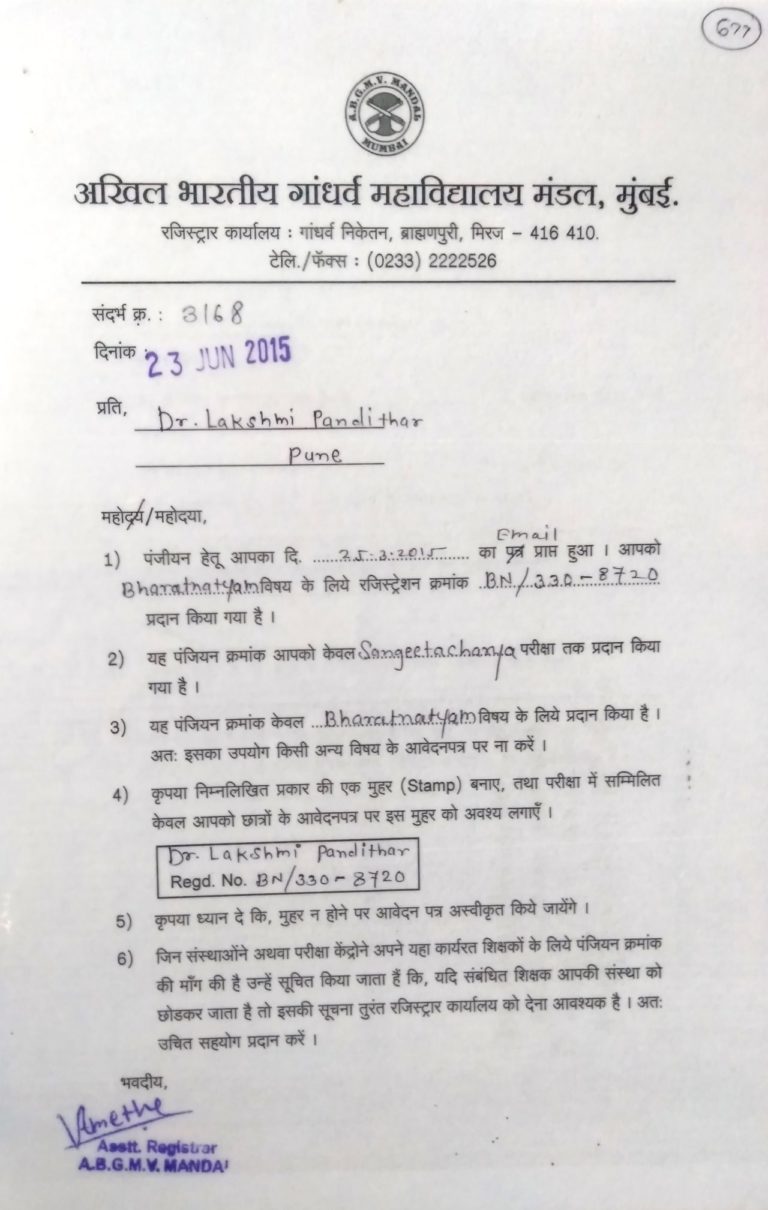 677
A.B.G.M.V. MANDAL
MUMBAI
अखिल भारतीय गांधर्व महाविद्यालय मंडल, मुंबई.
रजिस्ट्रार कार्यालय : गांधर्व निकेतन, ब्राह्मणपुरी, मिरज – 416 410.
टेलि./फॅक्स : (0233) 2222526
संदर्भ क्र. : 3168
दिनांक : 23 JUN 2015
प्रति, Dr. Lakshmi Pandithar
Pune
महोदय/महोदया,
Email
1) पंजीयन हेतू आपका दि. ......25.3.2015...... का पत्र प्राप्त हुआ । आपको
Bharatnatyam विषय के लिये रजिस्ट्रेशन क्रमांक BN/330-8720
प्रदान किया गया है ।
2) यह पंजियन क्रमांक आपको केवल Sangeetacharya परीक्षा तक प्रदान किया
गया है ।
3) यह पंजियन क्रमांक केवल ...Bharatnatyam विषय के लिये प्रदान किया है ।
अतः इसका उपयोग किसी अन्य विषय के आवेदनपत्र पर ना करें ।
4) कृपया निम्नलिखित प्रकार की एक मुहर (Stamp) बनाए, तथा परीक्षा में सम्मिलित
केवल आपको छात्रों के आवेदनपत्र पर इस मुहर को अवश्य लगाएँ ।
Dr. Lakshmi Pandithar
Regd. No. BN/330-8720
5) कृपया ध्यान दे कि, मुहर न होने पर आवेदन पत्र अस्वीकृत किये जायेंगे ।
6) जिन संस्थाओंने अथवा परीक्षा केंद्रोने अपने यहा कार्यरत शिक्षकों के लिये पंजियन क्रमांक
की माँग की है उन्हें सूचित किया जाता हैं कि, यदि संबंधित शिक्षक आपकी संस्था को
छोडकर जाता है तो इसकी सूचना तुरंत रजिस्ट्रार कार्यालय को देना आवश्यक है । अतः
उचित सहयोग प्रदान करें ।
भवदीय,
Asstt. Registrar
A.B.G.M.V. MANDAL